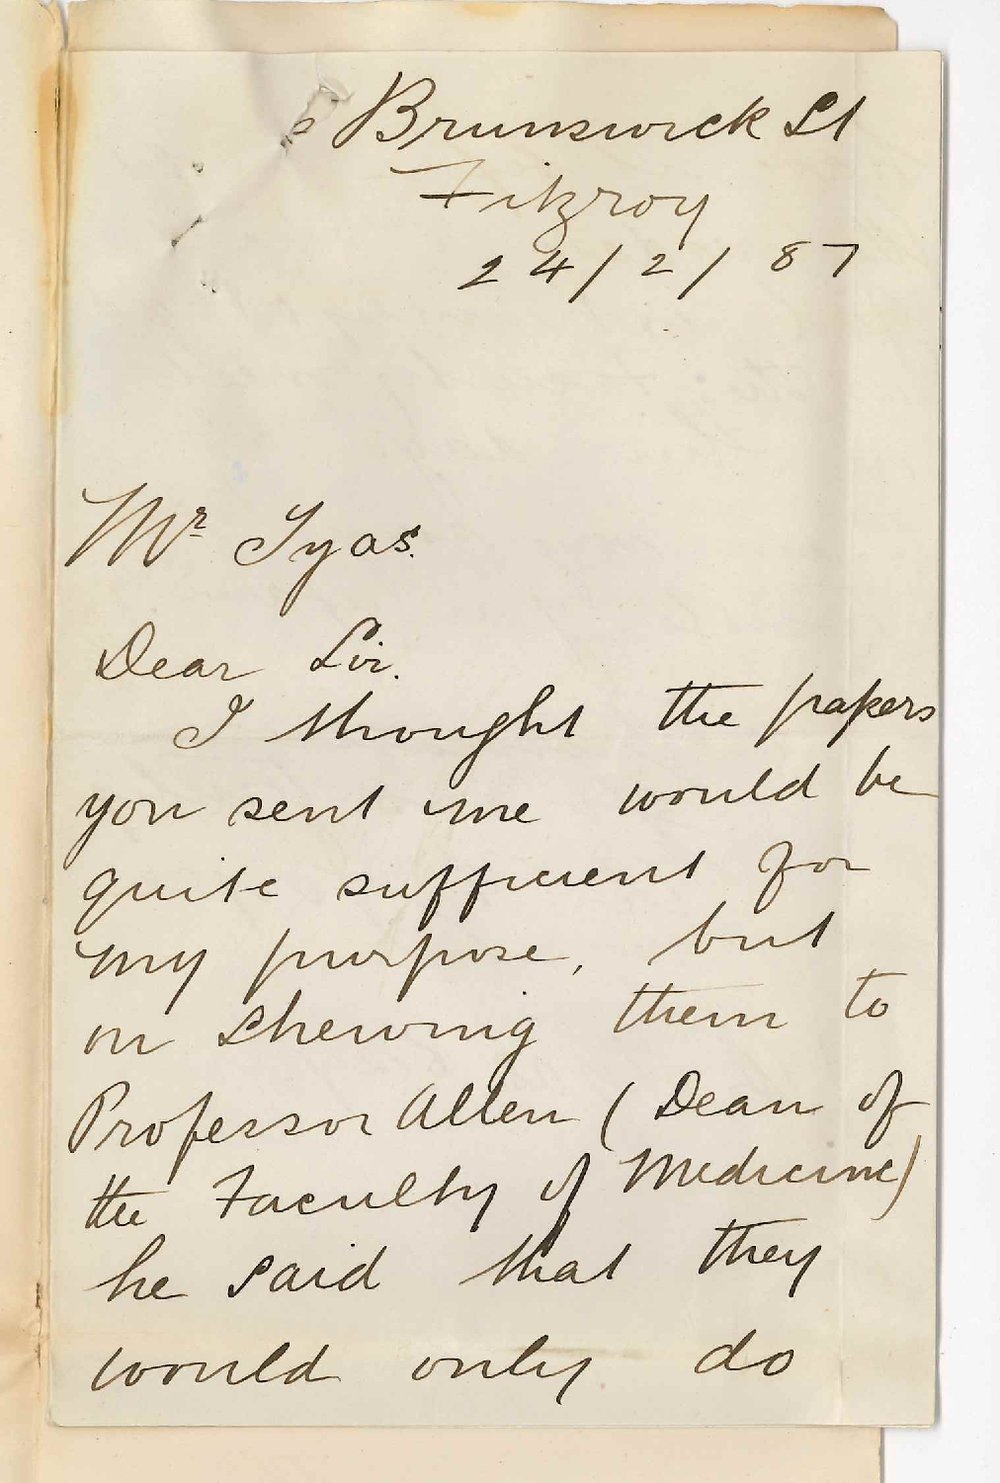 Brunswick St
Fitzroy
24/2/87
Mr Tyas.
Dear Sir.
I thought the papers
you sent me would be
quite sufficient for
my purpose, but
on shewing them to
Professor Allen (Dean of
the Faculty of Medicine)
he said that they
would only do